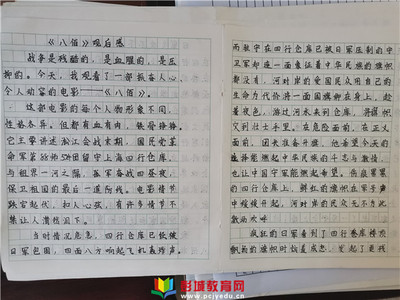 《八佰》观后感
战争是残酷的，是血腥的，是压
抑的。今天，我观看了一部振奋人心
令人动容的电影——《八佰》
这部电影的每个人物形象不同，
性格各异。但都有血有肉，铁骨铮铮。
它主要讲述淞沪会战末期，国民党革
命军第88师524团留守上海四行仓库，
与租界一河之隔，孤军奋战四昼夜，
保卫祖国的最后一道防线。电影情节
跌宕起伏，扣人心弦，有许多情节不
禁让人潸然泪下。
当时情况危急，四行仓库已经被
日军包围，四面八方响起飞机轰炸声。
而教守在四行仓库已被日军压制的守
卫军却连一面象征着中华民族的旗帜
都没有，河对岸的爱国民众用自己的
生命为代价将一面国旗绑在身上，趁
着夜色，游过河水来到仓库，将旗帜
交到壮士手里。在危险面前，在正义
面前，团长准备升旗，他希望今天的
升旗能燃起中华民族的斗志与激情，
也让中国守军能振奋希望。伤痕累累
的四行仓库上，鲜红的旗帜在军号声
中缓缓升起，河对岸的民众无不为此
激动欢呼
疯狂的日军看到了四行仓库楼顶
飘扬的旗帜时恼羞成怒，发起了更残
彩城教育网
www.pcjyedu.cn